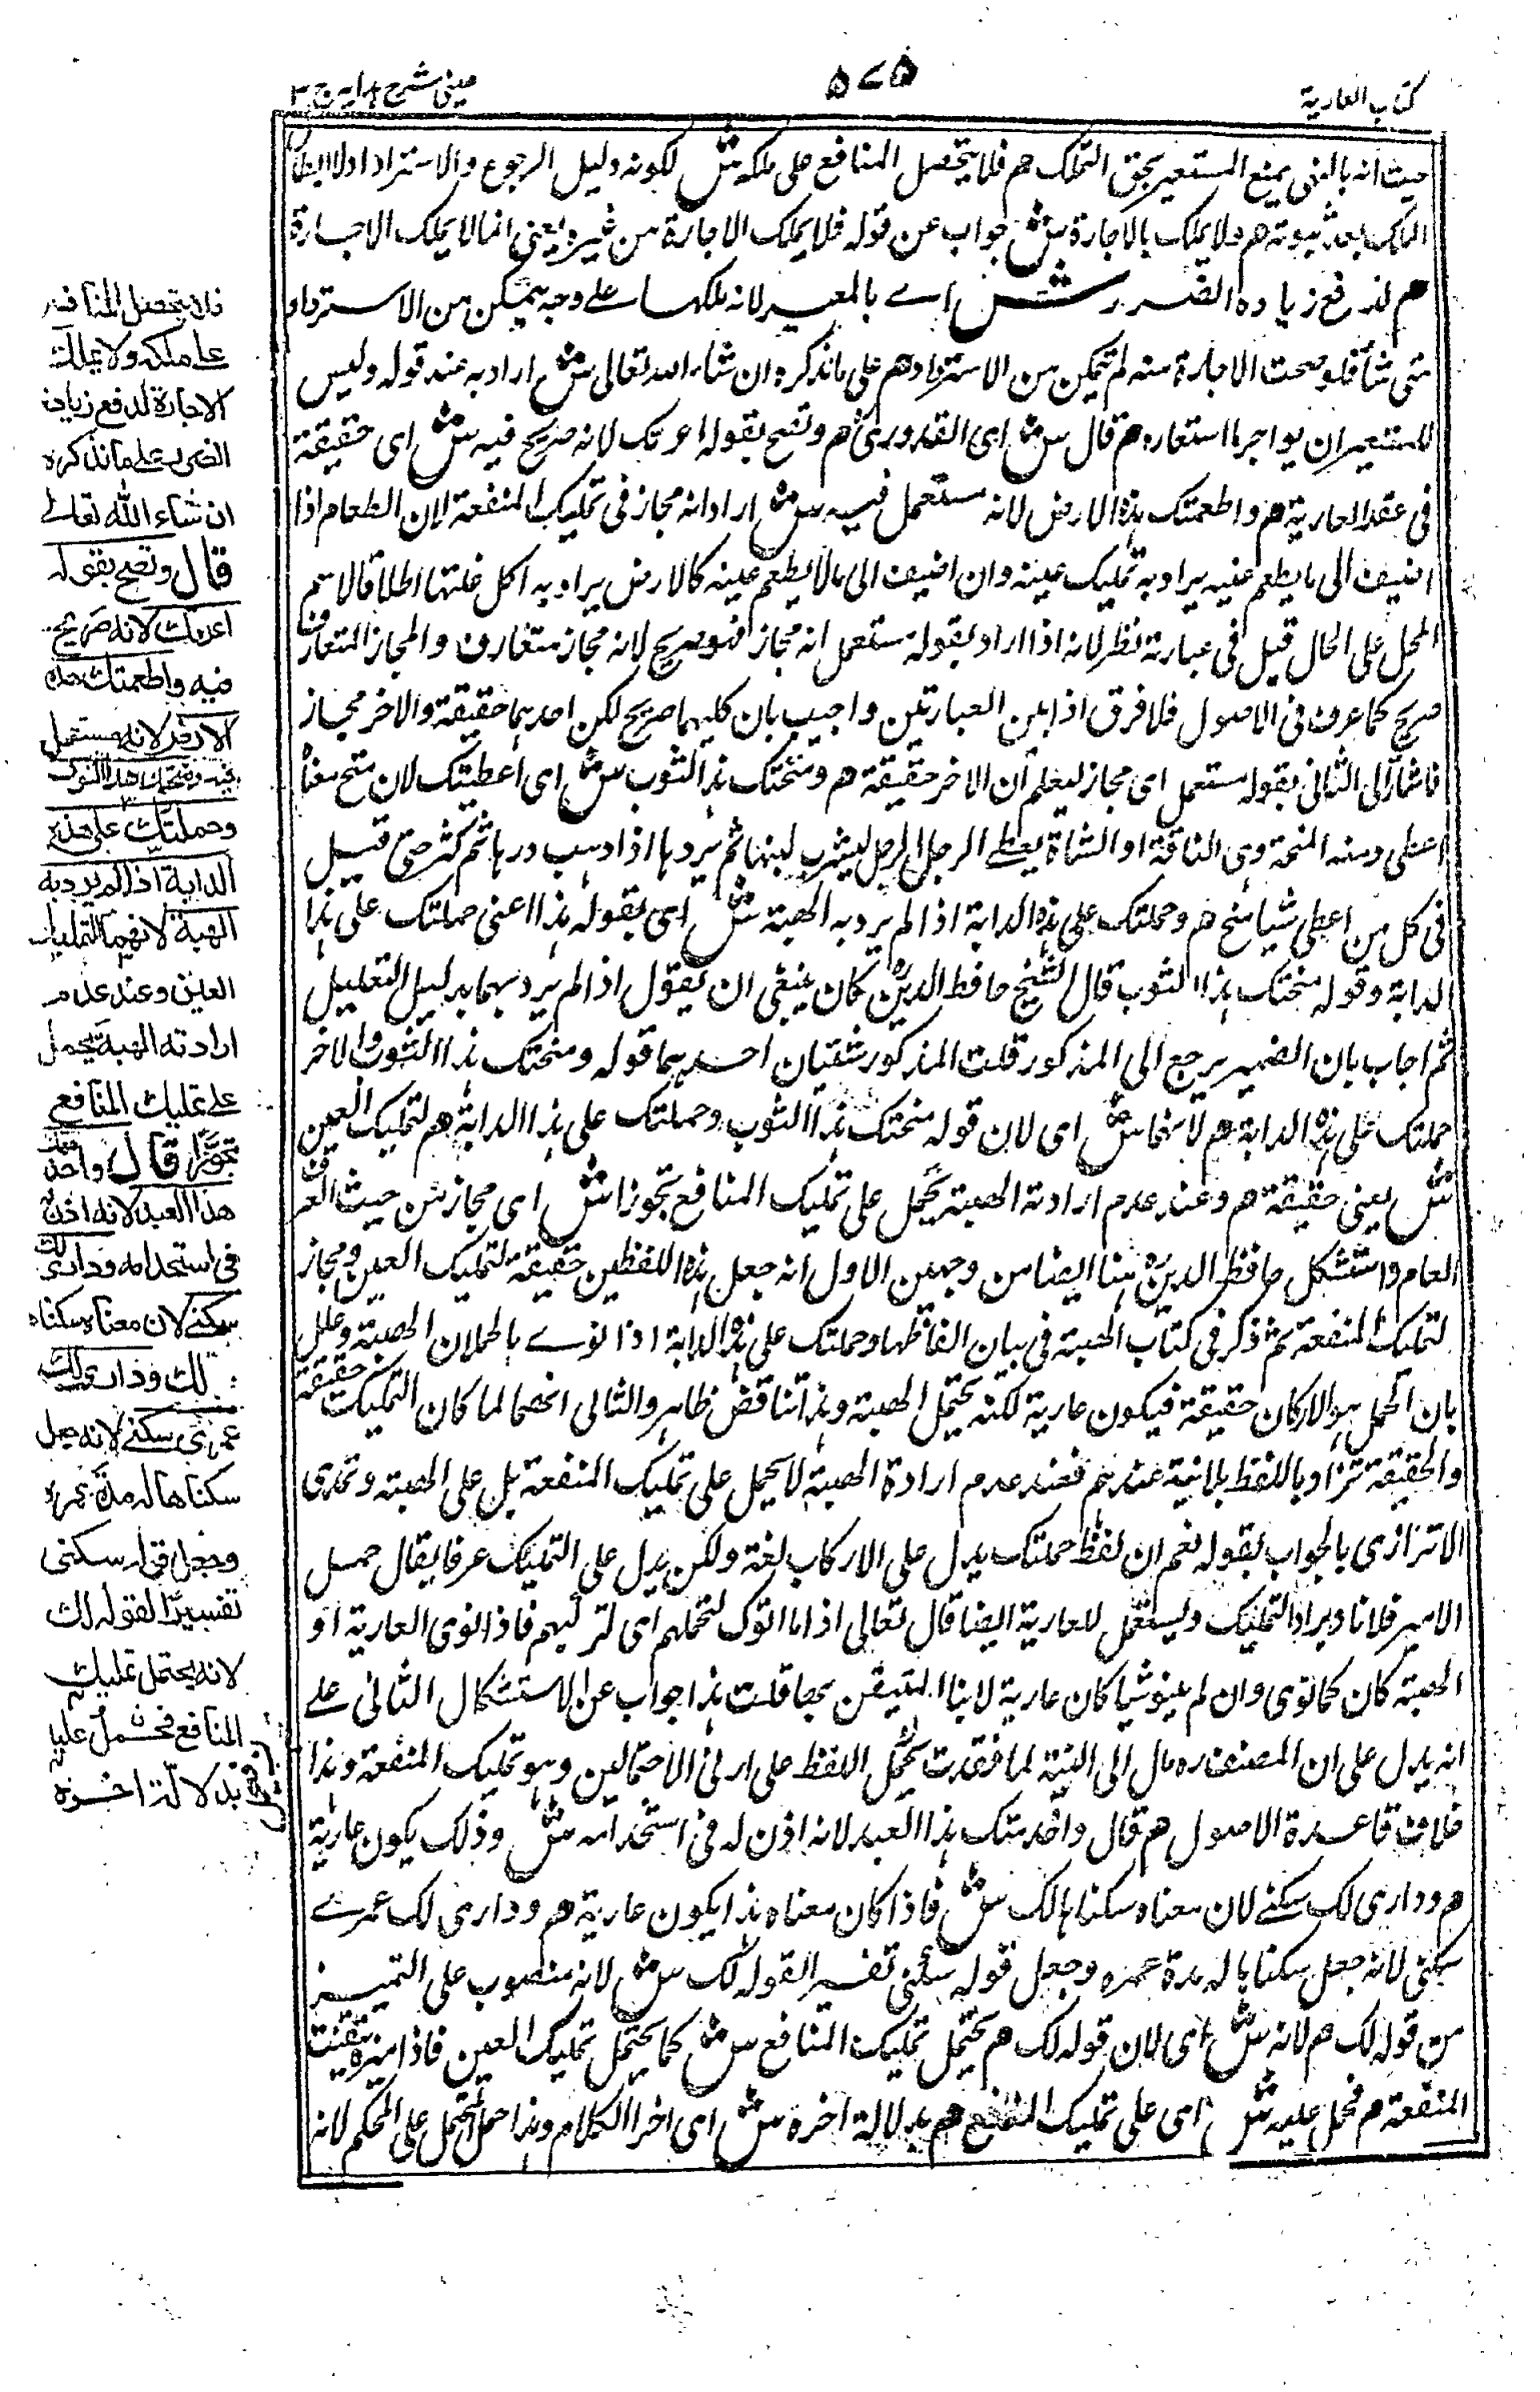 كتاب العارية
٥٧٥
عينى شرح هدايه ج ٣
حيث انه بالنهى يمنع المستعير بحق التملك هم فلا يتحصل المنافع على ملكه ش لكونه دليل الرجوع والاسترداد لا ابطال
الملك بعد ثبوته هم ولا يملك بالاجارة ش جواب عن قوله فلا يملك الاجارة من غيره يعنى انما لا يملك الاجارة
هم لدفع زيادة الضرر ش اے بالمعير لانه ملكها على وجه يتمكن من الاسترداد
متى شاء فلو صحت الاجارة منه لم يتمكن من الاسترداد هم على ما نذكره ان شاء الله تعالى ش اراد به عند قوله وليس
للمستعير ان يواجر ما استعاره هم قال ش اى القدورى هم وتصح بقوله اعرتك لانه صريح فيه ش اى حقيقة
فى عقد العارية هم واطعمتك هذه الارض لانه مستعمل فيه ش اراد انه مجاز فى تمليك المنفعة لان الطعام اذا
اضيف الى ما يطعم عينه يراد به تمليك عينه وان اضيف الى ما لا يطعم عينه كالارض يراد به اكل غلتها اطلاقا لاسم
المحل على الحال قيل فى عبارته نظر لانه اذا اراد بقوله مستعمل انه مجاز فهو صريح لانه مجاز متعارف والمجاز المتعارف
صريح كما عرف فى الاصول فلا فرق اذا بين العبارتين واجيب بان كليهما صريح لكن احدهما حقيقة والاخر مجاز
فاشار الى الثانى بقوله مستعمل اى مجاز ليعلم ان الاخر حقيقة هم ومنحتك هذا الثوب ش اى اعطيتك لان منح معناه
اعطى ومنه المنحة وهى الناقة او الشاة يعطے الرجل الرجل ليشرب لبنها ثم يردها اذا ذهب درها ثم كثر حتى قيل
فى كل من اعطى شيا منح هم وحملتك على هذه الدابة اذا لم يرد به الهبة ش اى بقوله هذا اعنى حملتك على هذا
الدابة وقوله منحتك هذا الثوب قال الشيخ حافظ الدين كان ينبغى ان يقول اذا لم يرد بهما بدليل التعليل
ثم اجاب بان الضمير يرجع الى المذكور قلت المذكور شيئان احدهما قوله ومنحتك هذا الثوب والاخر
حملتك على هذه الدابة هم لانهما ش اى لان قوله منحتك هذا الثوب وحملتك على هذا الدابة هم لتمليك العين
ش يعنى حقيقة هم وعند عدم ارادته الهبة يحمل على تمليك المنافع تجوزا ش اى مجاز من حيث العرف
العام واستشكل حافظ الدين هنا ايضا من وجهين الاول انه جعل هذه اللفظين حقيقة لتمليك العين ومجاز
لتمليك المنفعة ثم ذكر فى كتاب الهبة فى بيان الفاظها وحملتك على هذه الدابة اذا نوے بالحملان الهبة وعلل
بان الحمل هو الاركاب حقيقة فيكون عارية لكنه يحتمل الهبة وهذا تناقض ظاهر والثانى انهما لما كان التمليك حقيقة
والحقيقة تراد باللفظ بلا نية عندهم فعند عدم ارادة الهبة لا يحمل على تمليك المنفعة بل على الهبة وتصدى
الاترازى بالجواب بقوله نعم ان لفظ حملتك يدل على الاركاب لغة ولكن يدل على التمليك عرفا يقال حمل
الامير فلانا ويراد التمليك ويستعمل للعارية ايضا قال تعالى اذا ما اتوك لتحملهم اى لتركبهم فاذا نوى العارية او
الهبة كان كما نوى وان لم ينو شيا كان عارية لانها المتيقن بها قلت هذا جواب عن الاستشكال الثانى على
انه يدل على ان المصنف ره مال الى النية لما فقدت يحمل اللفظ على ادنى الاحتمالين وهو تمليك المنفعة وهذا
خلاف قاعدة الاصول هم قال واخدمتك هذا العبد لانه اذن له فى استخدامه ش وذلك يكون عارية
هم ودارى لك سكنے لان معناه سكناها لك ش فاذا كان معناه هذا يكون عارية هم ودارى لك عمرے
سكنى لانه جعل سكناها له مدة عمره وجعل قوله سكنى تفسيرا لقوله لك ش لانه منصوب على التمييز
من قوله لك هم لانه ش اى لان قوله لك هم يحتمل تمليك المنافع ش كما يحتمل تمليك العين فاذا ميزه تعينت
المنفعة هم فحمل عليه ش اى على تمليك المنافع هم بدلالة اخره ش اى اخر الكلام وهذا حمل المحتمل على المحكم لانه
فلا يتحصل المنافع
على ملكه ولا يملك
الاجارة لدفع زيادة
الضرر على ما نذكره
ان شاء الله تعالے
قال وتصح بقوله
اعرتك لانه صريح
فيه واطعمتك هذه
الارض لانه مستعمل
فيه ومنحتك هذا الثوب
وحملتك على هذه
الدابة اذا لم يرد به
الهبة لانهما لتمليك
العين وعند عدم
ارادته الهبة يحمل
على تمليك المنافع
تجوزا قال واخدمتك
هذا العبد لانه اذن له
فى استخدامه ودارى لك
سكنے لان معناه سكناه
لك ودارى لك
عمرى سكنے لانه جعل
سكناها له مدة عمره
وجعل قوله سكنى
تفسيرا لقوله لك
لانه يحتمل تمليك
المنافع فحمل عليه
بدلالة اخره